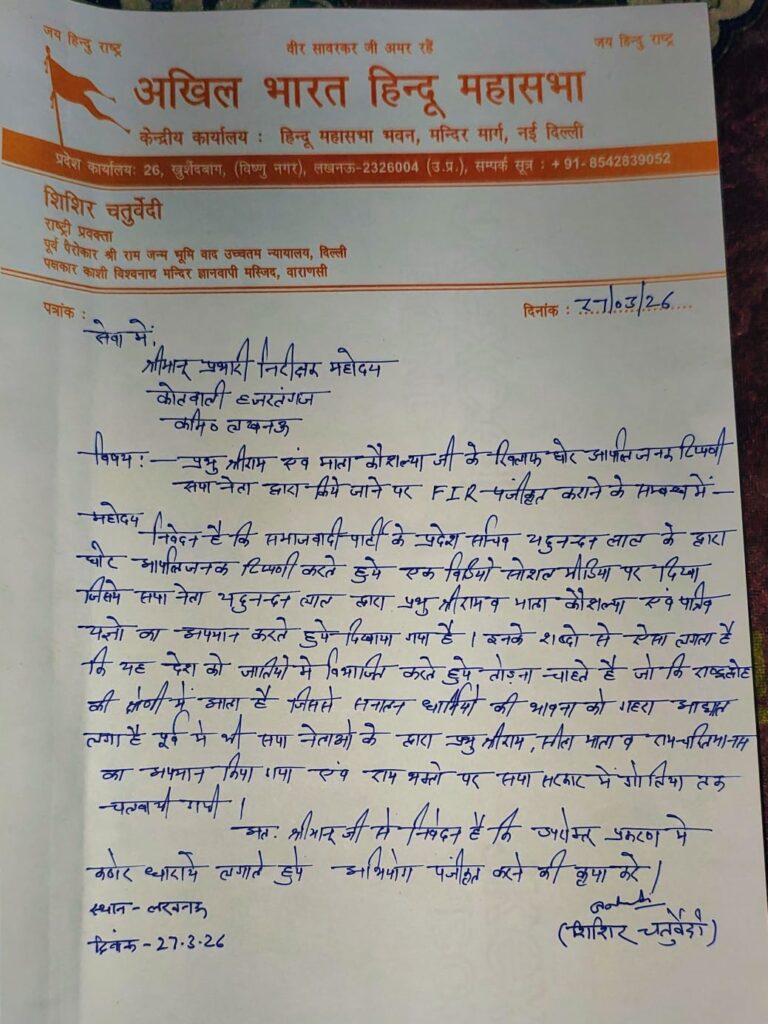 जय हिन्दु राष्ट्र वीर सावरकर जी अमर रहें जय हिन्दु राष्ट्र
अखिल भारत हिन्दू महासभा
केन्द्रीय कार्यालय : हिन्दू महासभा भवन, मन्दिर मार्ग, नई दिल्ली
प्रदेश कार्यालयः 26, खुर्शेदबाग, (विष्णु नगर), लखनऊ-2326004 (उ.प्र.), सम्पर्क सूत्र : +91-8542839052
शिशिर चतुर्वेदी
राष्ट्री प्रवक्ता
पूर्व पैरोकार श्री राम जन्म भूमि वाद उच्चतम न्यायालय, दिल्ली
पक्षकार काशी विश्वनाथ मन्दिर ज्ञानवापी मस्जिद, वाराणसी
पत्रांक : दिनांक : 27/03/26
सेवा में,
श्रीमान् प्रभारी निरीक्षक महोदय
कोतवाली हजरतगंज
कमि० लखनऊ
विषय :- प्रभु श्रीराम एंव माता कौशल्या जी के खिलाफ घोर आपत्तिजनक टिप्पणी
सपा नेता द्वारा किये जाने पर FIR पंजीकृत कराने के सम्बन्ध में-
महोदय
निवेदन है कि समाजवादी पार्टी के प्रदेश सचिव यदुनन्दन लाल के द्वारा
घोर आपत्तिजनक टिप्पणी करते हुये एक विडियो सोशल मीडिया पर दिखा
जिसमे सपा नेता यदुनन्दन लाल द्वारा प्रभु श्रीराम व माता कौशल्या एंव पवित्र
यज्ञो का अपमान करते हुये दिखाया गया है । इनके शब्दो से ऐसा लगता है
कि यह देश को जातियो मे विभाजित करते हुये तोड़ना चाहते है जो कि राष्ट्रद्रोह
की श्रेणी में आता है जिससे सनातन धार्मियो की भावना को गहरा आघात
लगा है पूर्व मे भी सपा नेताओ के द्वारा प्रभु श्रीराम, सीता माता व रामचरितमानस
का अपमान किया गया एंव राम भक्तो पर सपा सरकार में गोलिया तक
चलवायी गयी ।
अतः श्रीमान् जी से निवेदन है कि उपरोक्त प्रकरण मे
कठोर धाराये लगाते हुये अभियोग पंजीकृत करने की कृपा करे ।
स्थान - लखनऊ
दिनांक - 27.3.26
(शिशिर चतुर्वेदी)